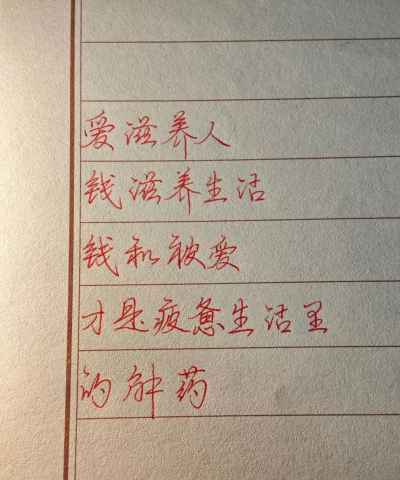 爱滋养人
钱滋养生活
钱和被爱
才是疲惫生活里
的解药